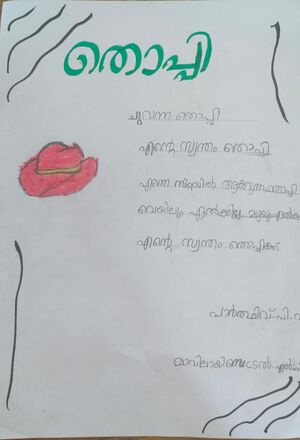 തൊപ്പി
ചുവന്ന തൊപ്പി
എന്റെ സ്വന്തം തൊപ്പി
എന്നെ
വെയിലും ഏൽക്കില്ല
എന്റെ സ്വന്തം തൊപ്പിക്ക്
പാർത്ഥിവ്.പി.വ